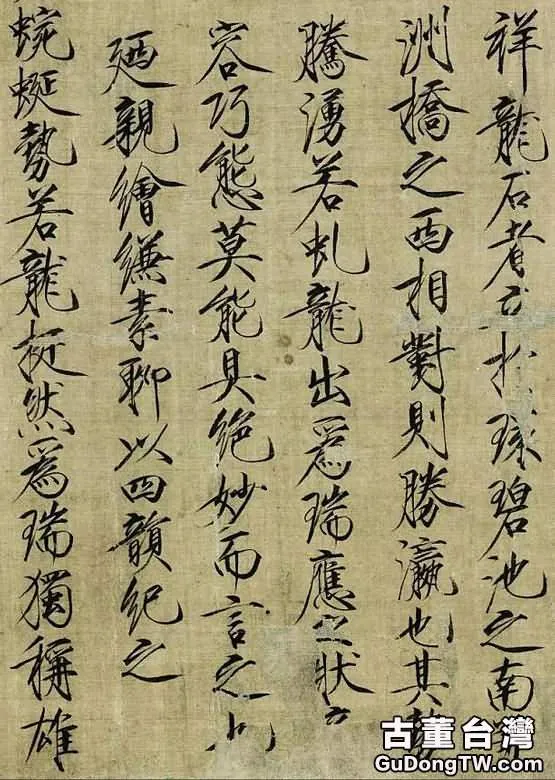 祥龍石者立於環碧池之南
洲橋之西相對則勝瀛也其勢
騰湧若虬龍出爲瑞應之狀
容巧態莫能具絕妙而言之也
廼親繪縑素聊以四韻紀之
蜿蜒勢若龍挺然爲瑞獨稱雄
古董台灣
GuDongTW.com